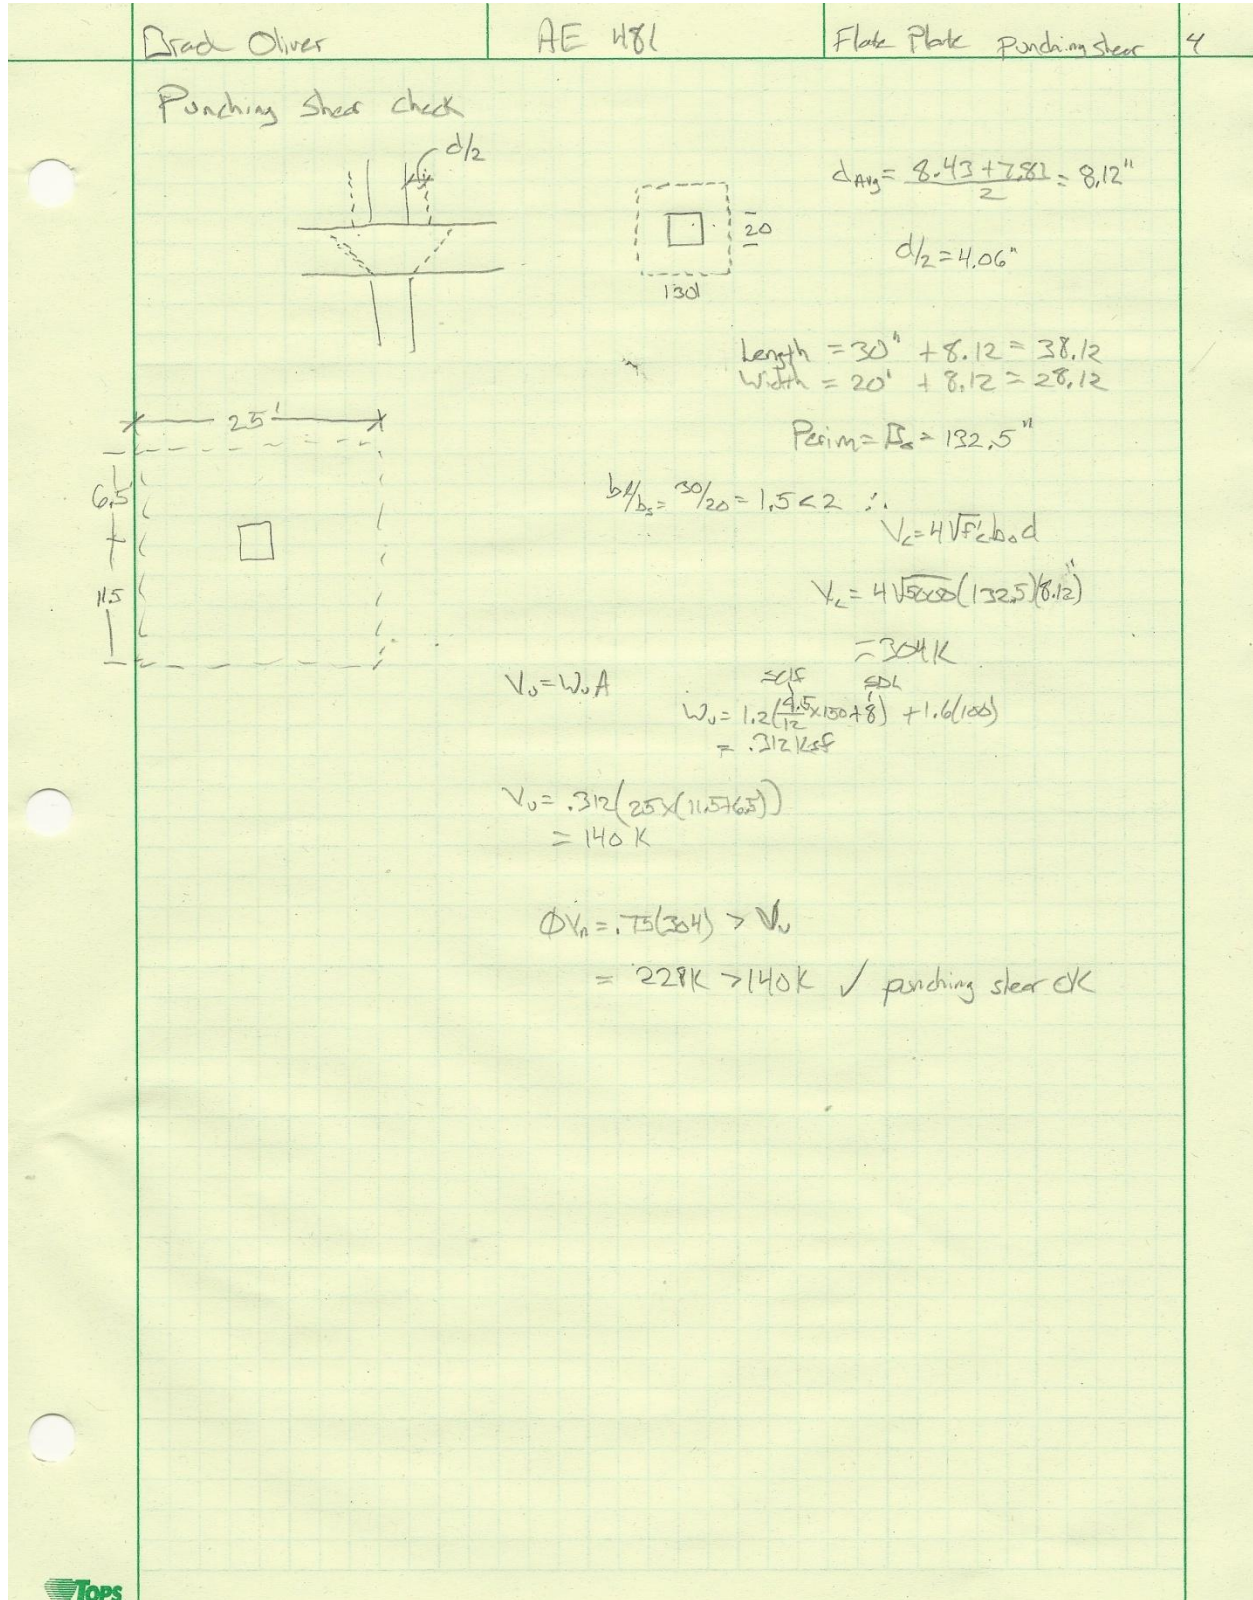 Brad Oliver AE 481 Flate Plate Punching shear 4
Punching Shear Check
d/2
dAvg = 8.43+7.81/2 = 8.12"
20
30
d/2 = 4.06"
Length = 30" + 8.12 = 38.12
Width = 20' + 8.12 = 28.12
25'
Perim = Bo = 132.5"
6.5'
bl/bs = 30/20 = 1.5 < 2 ∴
Vc = 4√f'c bo d
11.5
Vc = 4√5000 (132.5)(8.12")
= 304K
Vu = Wu A
self SDL
Wu = 1.2(9.5/12 x150+8) + 1.6(100)
= .312 Ksf
Vu = .312(25x(11.5+6.5))
= 140 K
ØVn = .75(304) > Vu
= 228K > 140K ✓ punching shear OK
TOPS